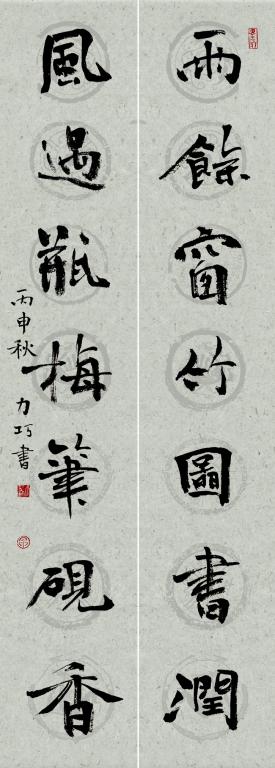 雨餘窗竹圖書潤
風過瓶梅筆硯香
丙申秋力巧書